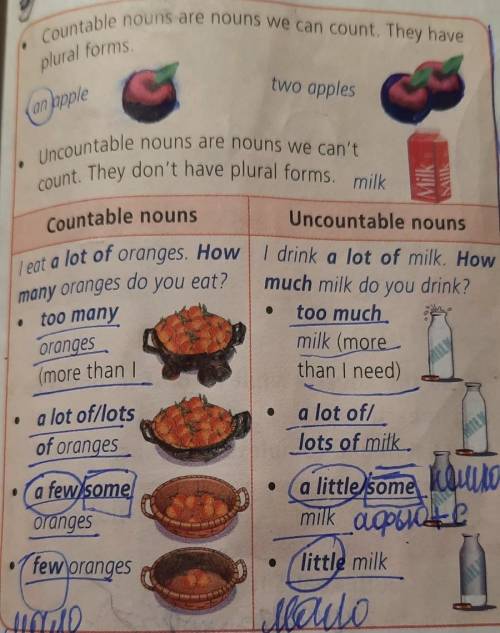 Countable nouns are nouns we can count. They have
plural forms.
an apple
two apples
Uncountable nouns are nouns we can't
count. They don't have plural forms.
milk
Milk
Milk
Countable nouns
Uncountable nouns
I eat a lot of oranges. How
many oranges do you eat?
too many
oranges
(more than I
a lot of/lots
of oranges
a few/some
oranges
few oranges
мало
I drink a lot of milk. How
much milk do you drink?
too much
milk (more
than I need)
a lot of/
lots of milk
a little/some
milk
little milk
мало
MILK
MILK
MILK